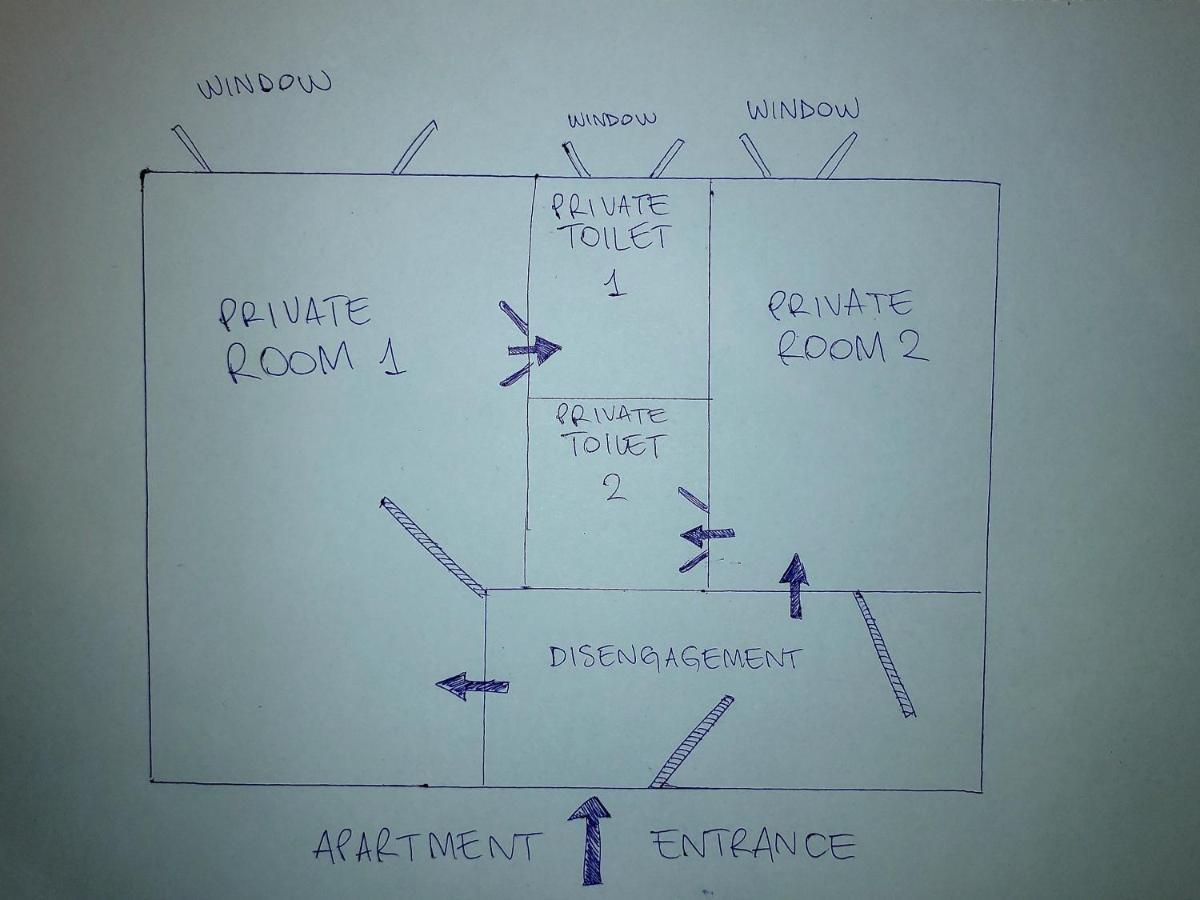 WINDOW
WINDOW
WINDOW
PRIVATE
TOILET
1
PRIVATE
ROOM 1
PRIVATE
ROOM 2
PRIVATE
TOILET
2
DISENGAGEMENT
APARTMENT ENTRANCE